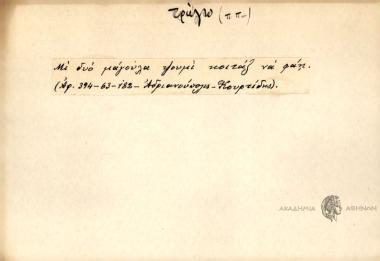 τρώγω (π π-)
Μὲ δυό μάγουλα ψουμὶ κοιτάζ νά φάῃ.
(Αρ. 394-63-182- Ἀδριανούπολις-Κουρτίδης).
ΑΚΑΔΗΜΙΑ ΑΘΗΝΩΝ